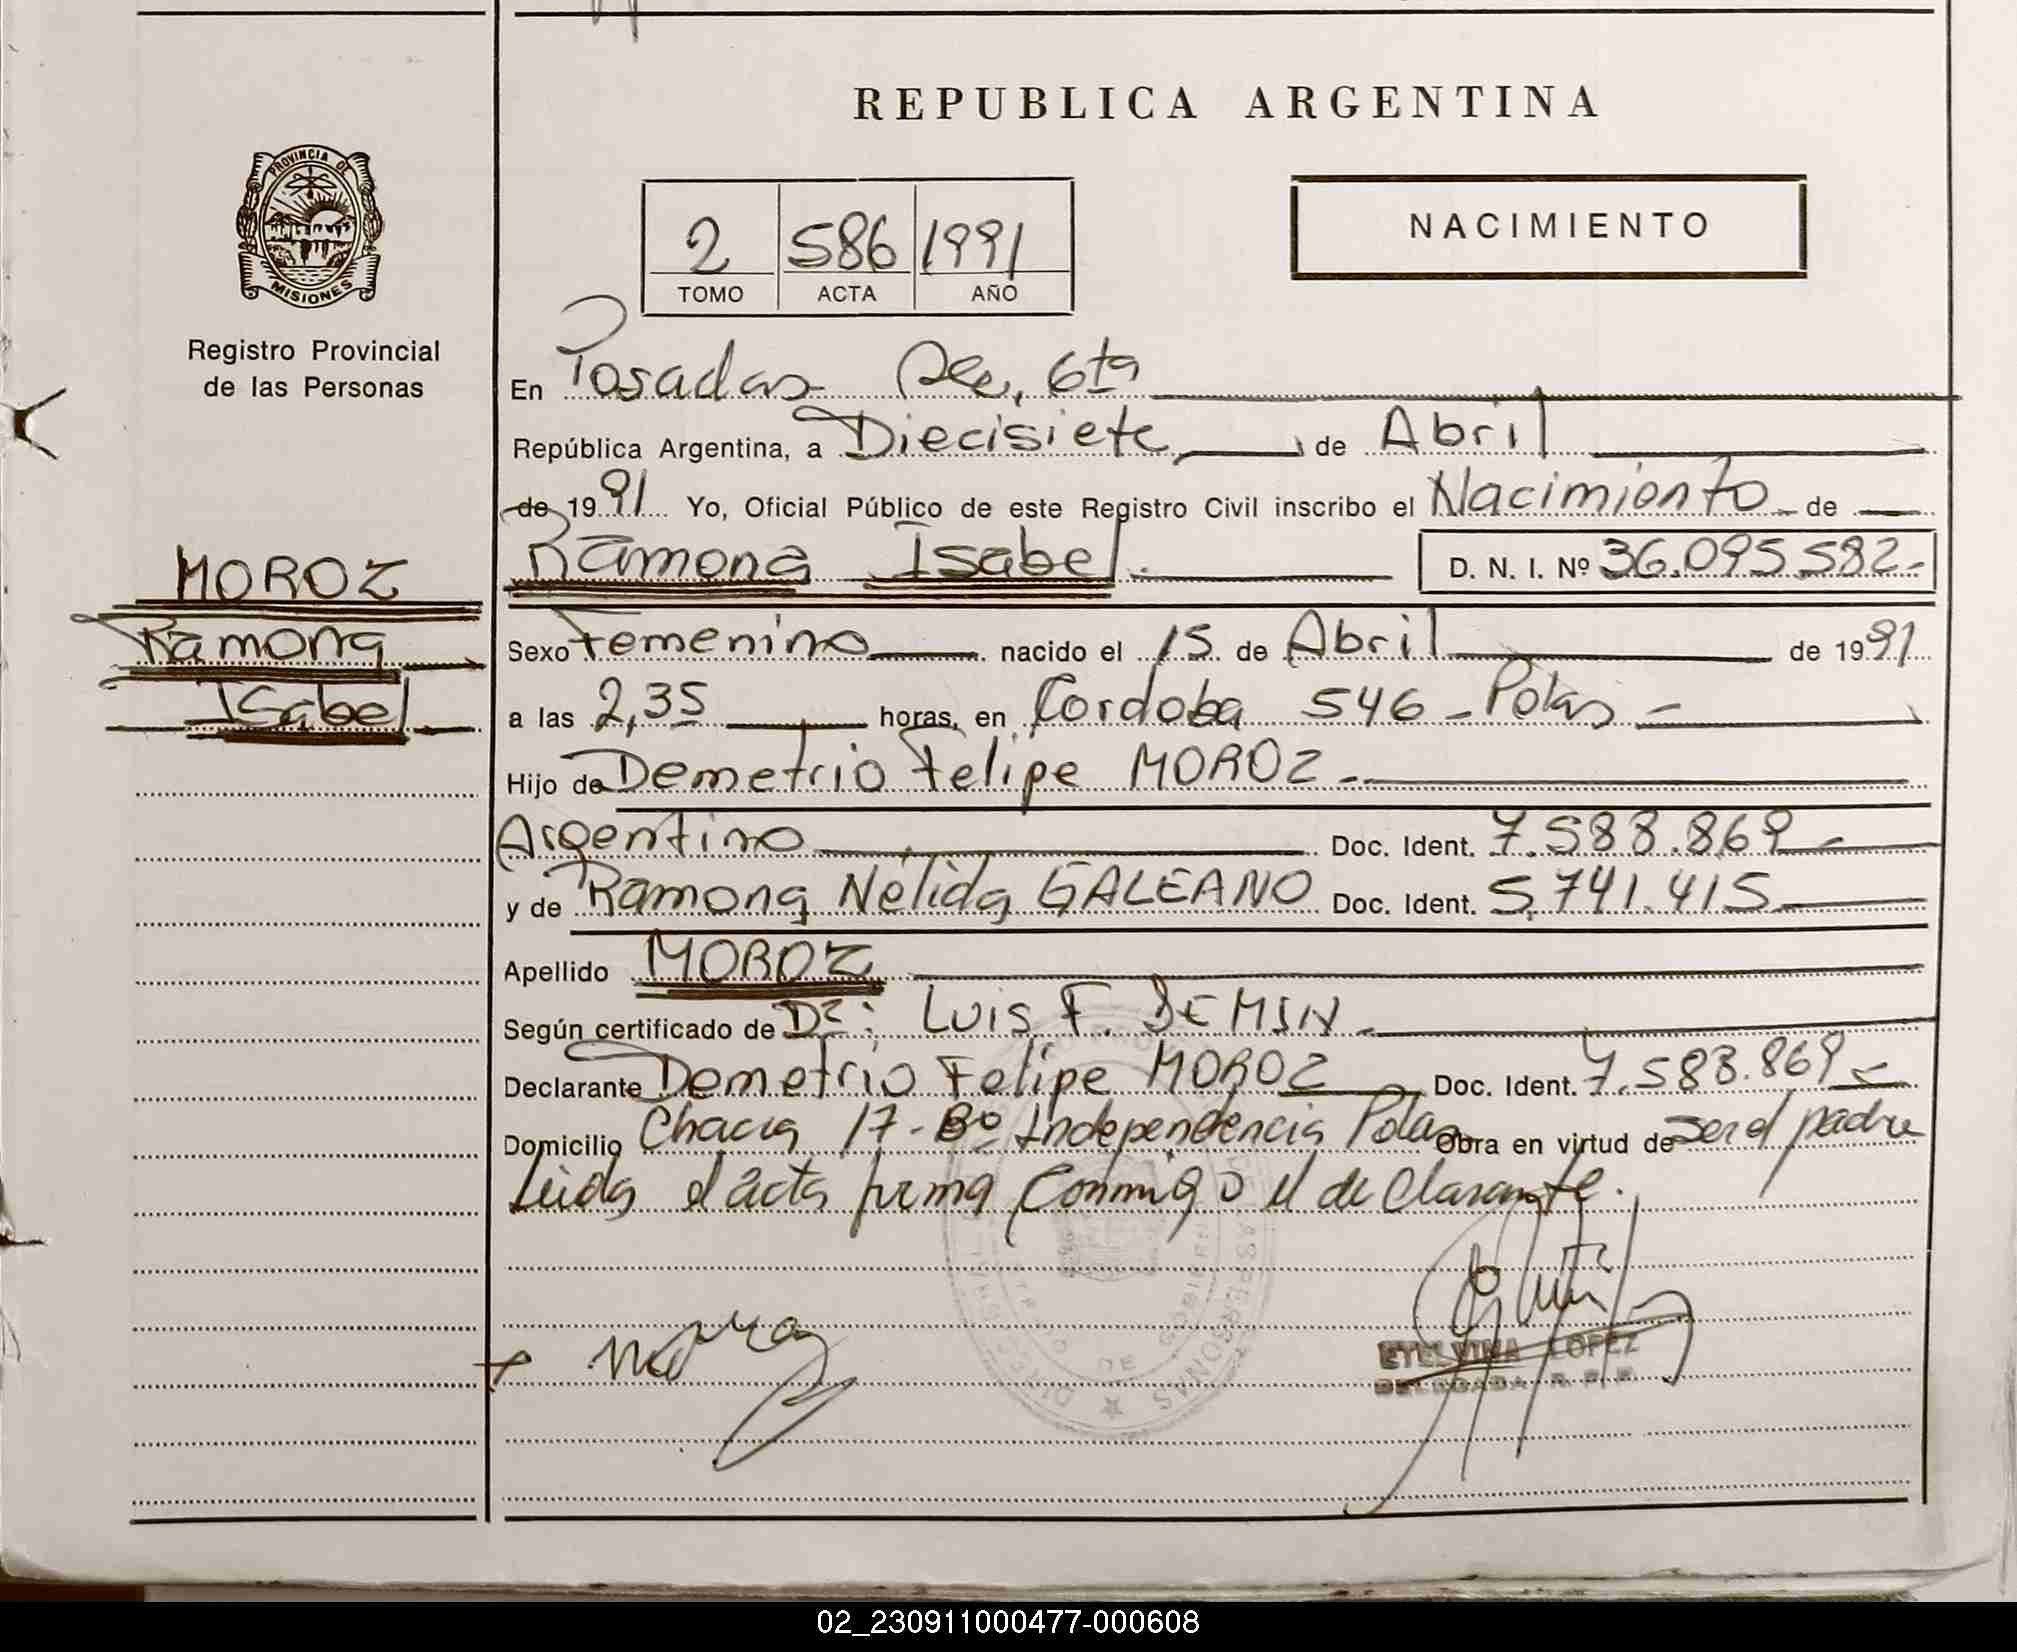 REPUBLICA ARGENTINA
PROVINCIA DE MISIONES
Registro Provincial
de las Personas
2 586 1991
TOMO ACTA AÑO
NACIMIENTO
En Posadas 6ta
República Argentina, a Diecisiete de Abril
de 1991 Yo, Oficial Público de este Registro Civil inscribo el Nacimiento de
MOROZ
Ramona
Isabel
Ramona Isabel D. N. I. Nº 36.095.582
Sexo Femenino nacido el 15 de Abril de 1991
a las 2,35 horas, en Cordoba 546 - Pdas -
Hijo de Demetrio Felipe MOROZ -
Argentino Doc. Ident. 7.588.869
y de Ramona Nélida GALEANO Doc. Ident. 5.741.415
Apellido MOROZ
Según certificado de Dr: Luis F.
Declarante Demetrio Felipe MOROZ Doc. Ident. 7.588.869
Domicilio Chacra 17 - Bº Independencia Pdas Obra en virtud de ser el padre
Leida el acta firma conmigo el declarante.
ETELVINA LOPEZ
DELEGADA R. P. P.
02_230911000477-000608